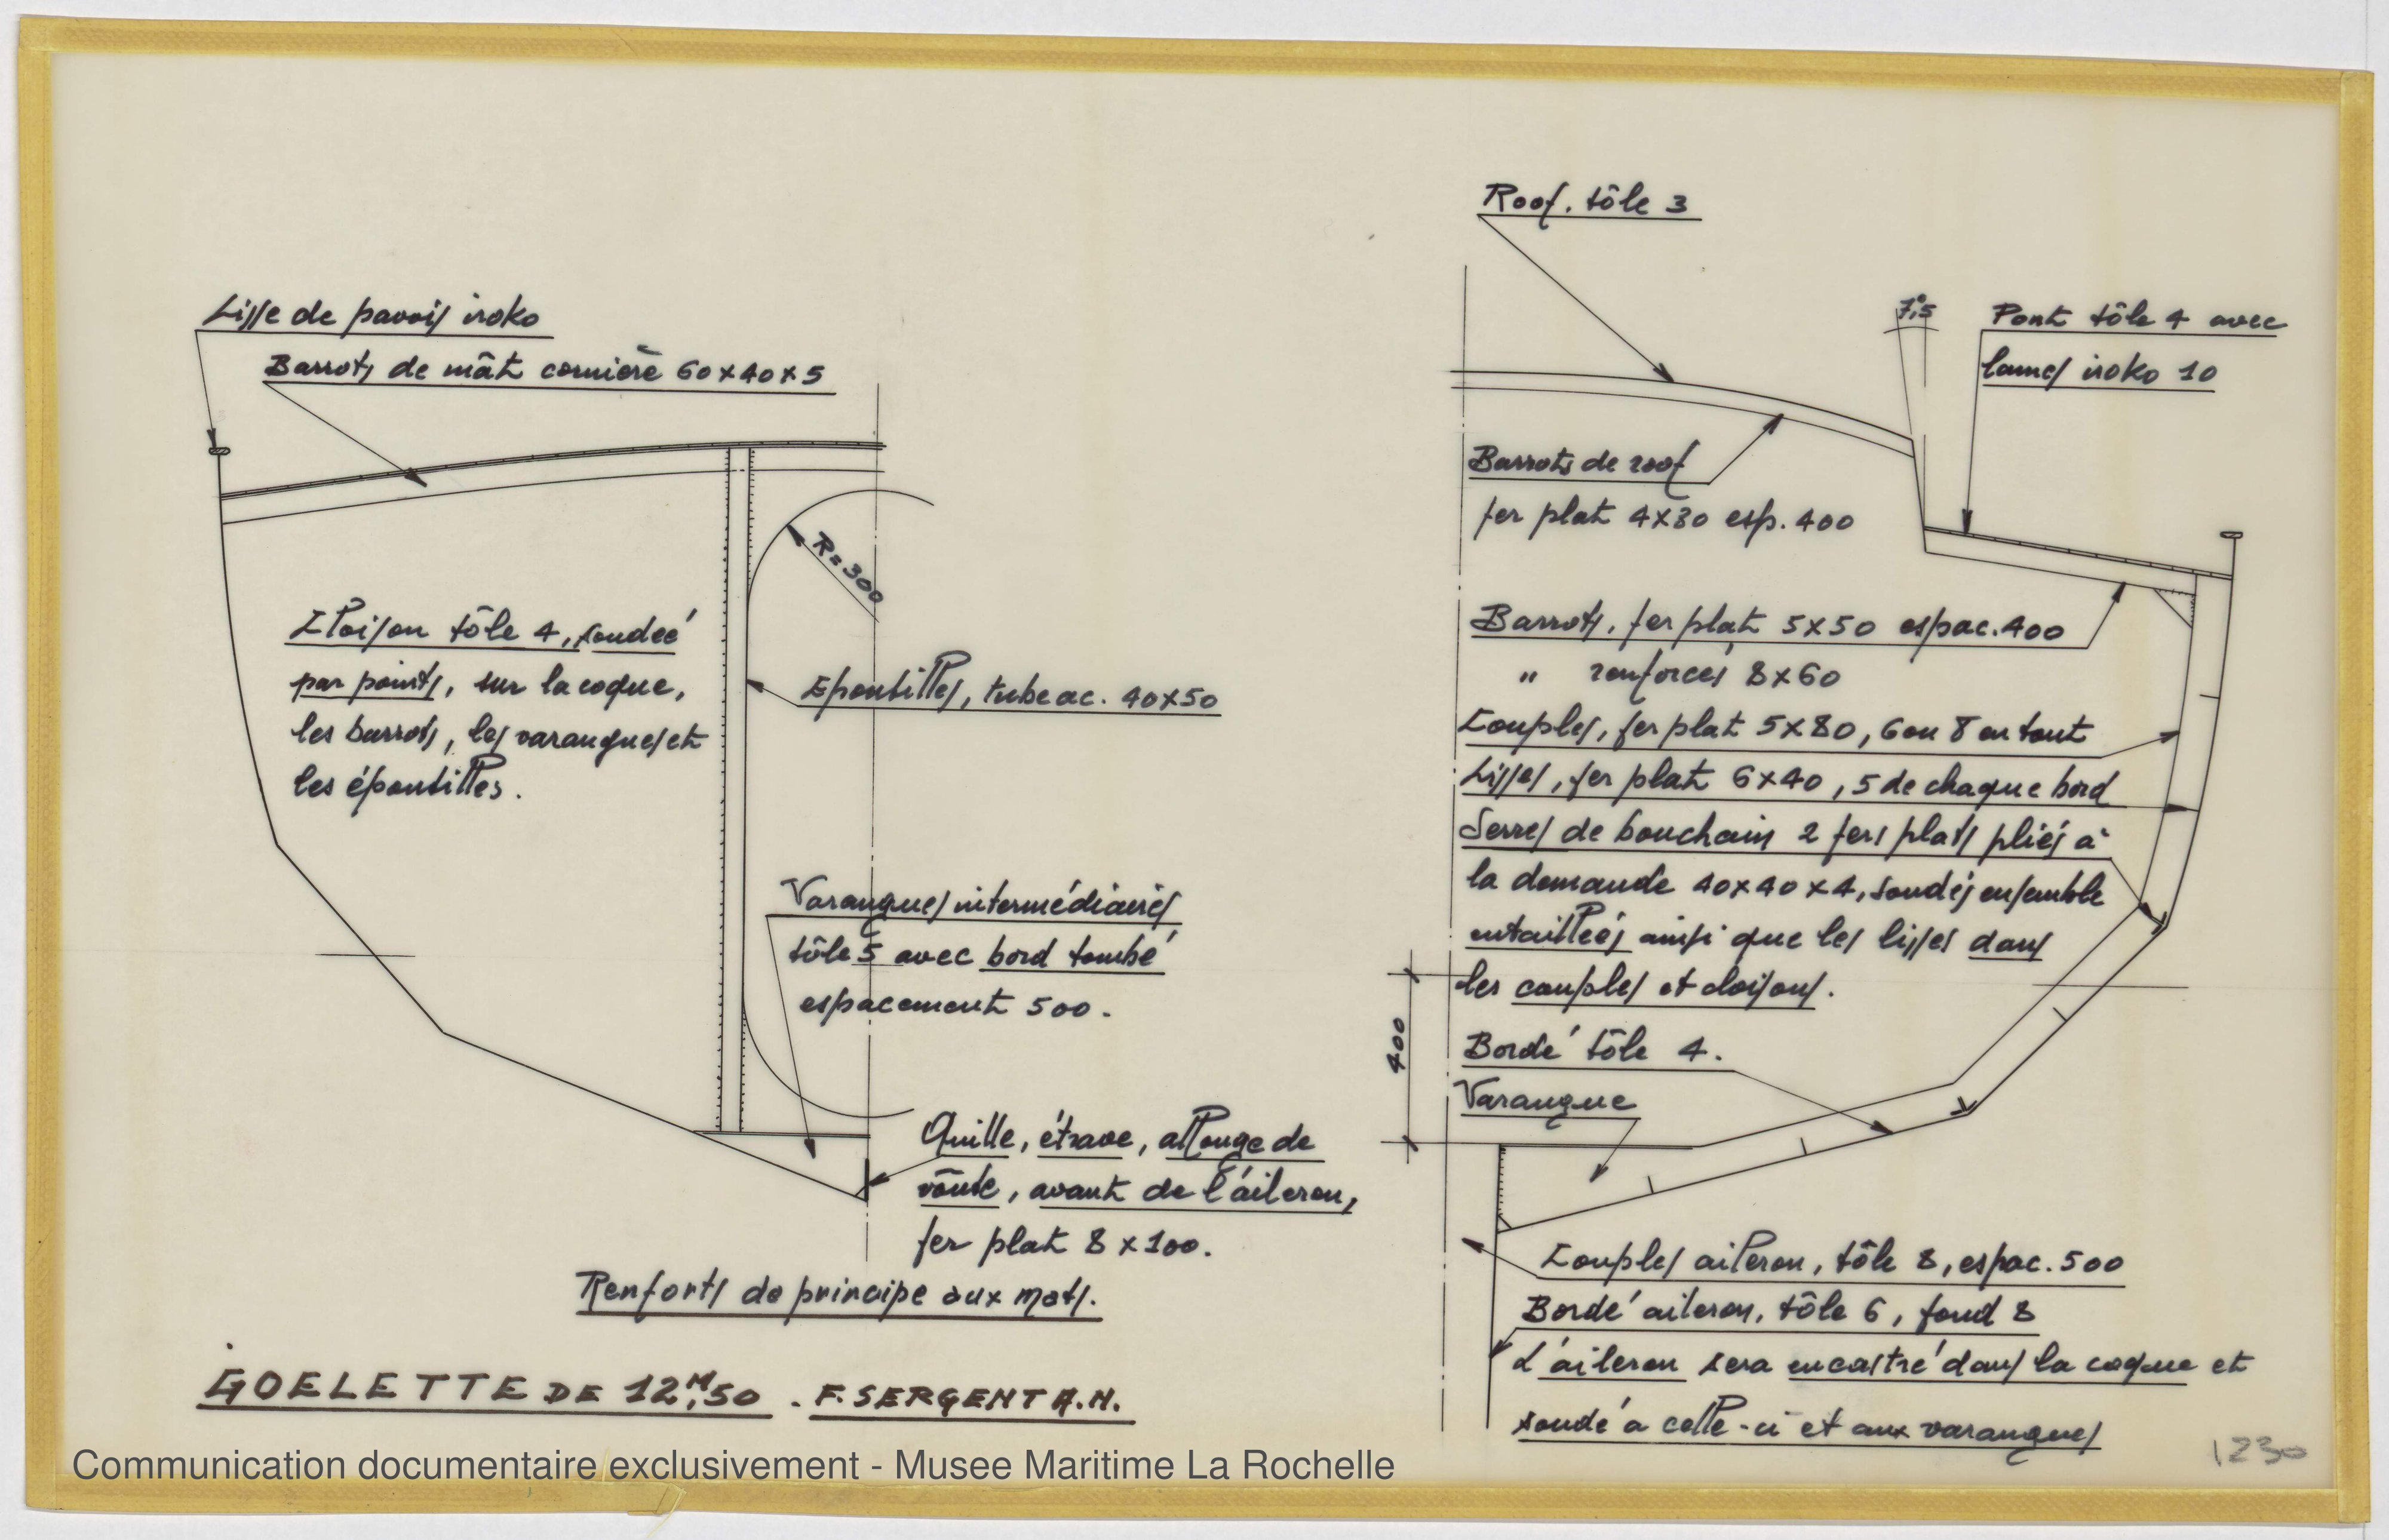 Lisse de pavois iroko
Barrots de mât cornière 60x40x5
Cloison tôle 4, soudée
par points, sur la coque,
les barrots, les varangues et
les épontilles.
R=300
Epontilles, tube ac. 40x50
Varangues intermédiaires
tôle 5 avec bord tombé
espacement 500.
Quille, étrave, allonge de
voûte, avant de l'aileron,
fer plat 8 x 100.
Renforts de principe aux mats.
GOELETTE DE 12,M50 . F. SERGENT A.N.
Roof. tôle 3
7,°5
Pont tôle 4 avec
lames iroko 10
Barrots de roof
fer plat 4x30 esp. 400
Barrots, fer plat 5x50 espac. 400
" renforcés 8x60
Couples, fer plat 5x80, 6 ou 8 en tout
Lisses, fer plat 6x40, 5 de chaque bord
Serres de bouchain 2 fers plats pliés à
la demande 40x40x4, soudés ensemble
entaillées ainsi que les lisses dans
les couples et cloisons.
400
Bordé tôle 4.
Varangue
Couples aileron, tôle 8, espac. 500
Bordé aileron, tôle 6, fond 8
L'aileron sera encastré dans la coque et
soudé a celle-ci et aux varangues
1230
Communication documentaire exclusivement - Musee Maritime La Rochelle